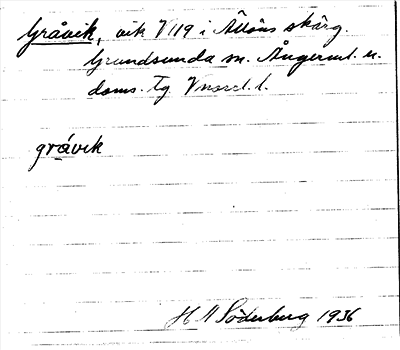 Gråvik, vik V 119 i Ällöns skärg.
Grundsunda sn. Ångerml. n.
doms. Tg Vnorrl. l.
gråvik
H Söderberg 1936